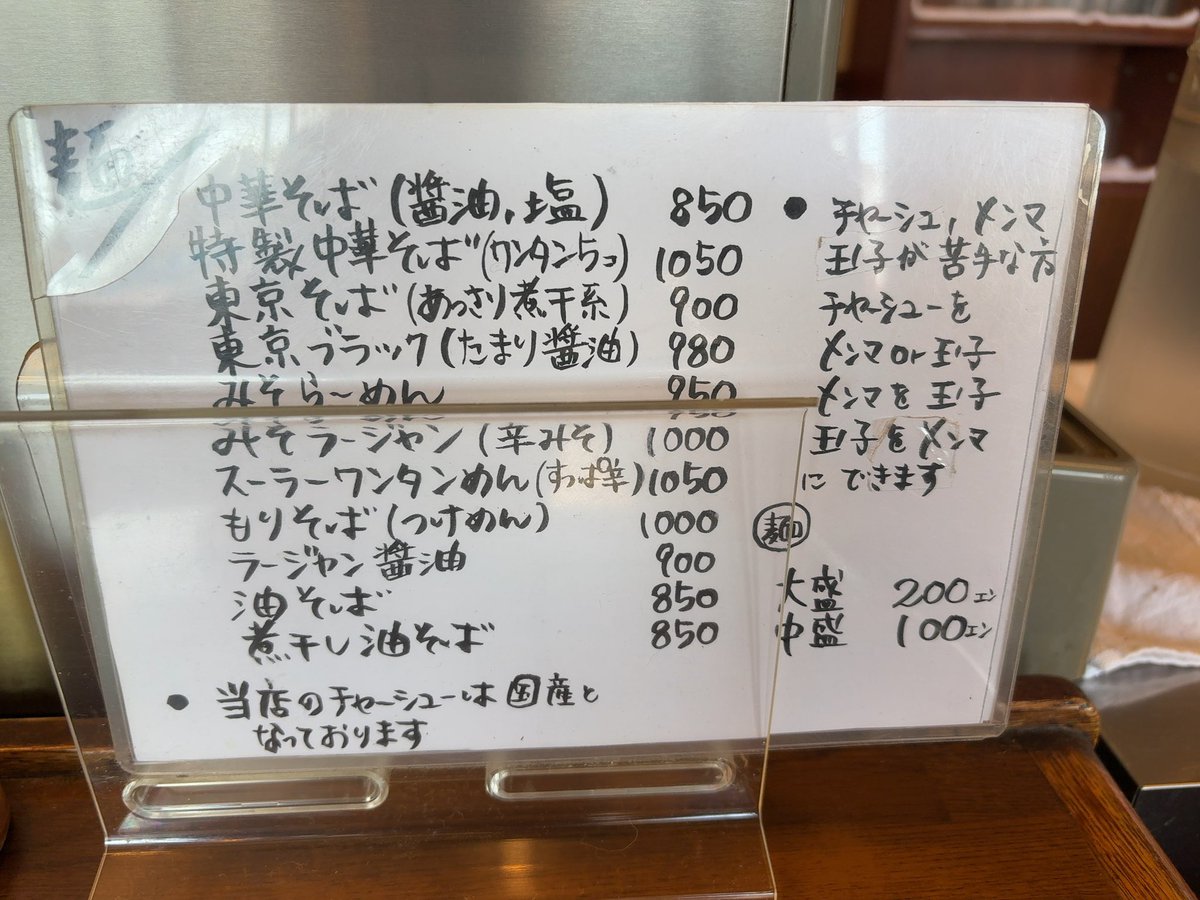 麺
中華そば(醤油,塩) 850
特製中華そば(ワンタン5コ) 1050
東京そば(あっさり煮干系) 900
東京ブラック(たまり醤油) 980
みそら〜めん 950
みそラージャン(辛みそ) 1000
スーラーワンタンめん(すっぱ辛) 1050
もりそば(つけめん) 1000
ラージャン醤油 900
油そば 850
煮干し油そば 850
● 当店のチャーシューは国産と
なっております
● チャーシュ,メンマ
玉子が苦手な方
チャーシューを
メンマor玉子
メンマを玉子
玉子をメンマ
にできます
麺
大盛 200エン
中盛 100エン